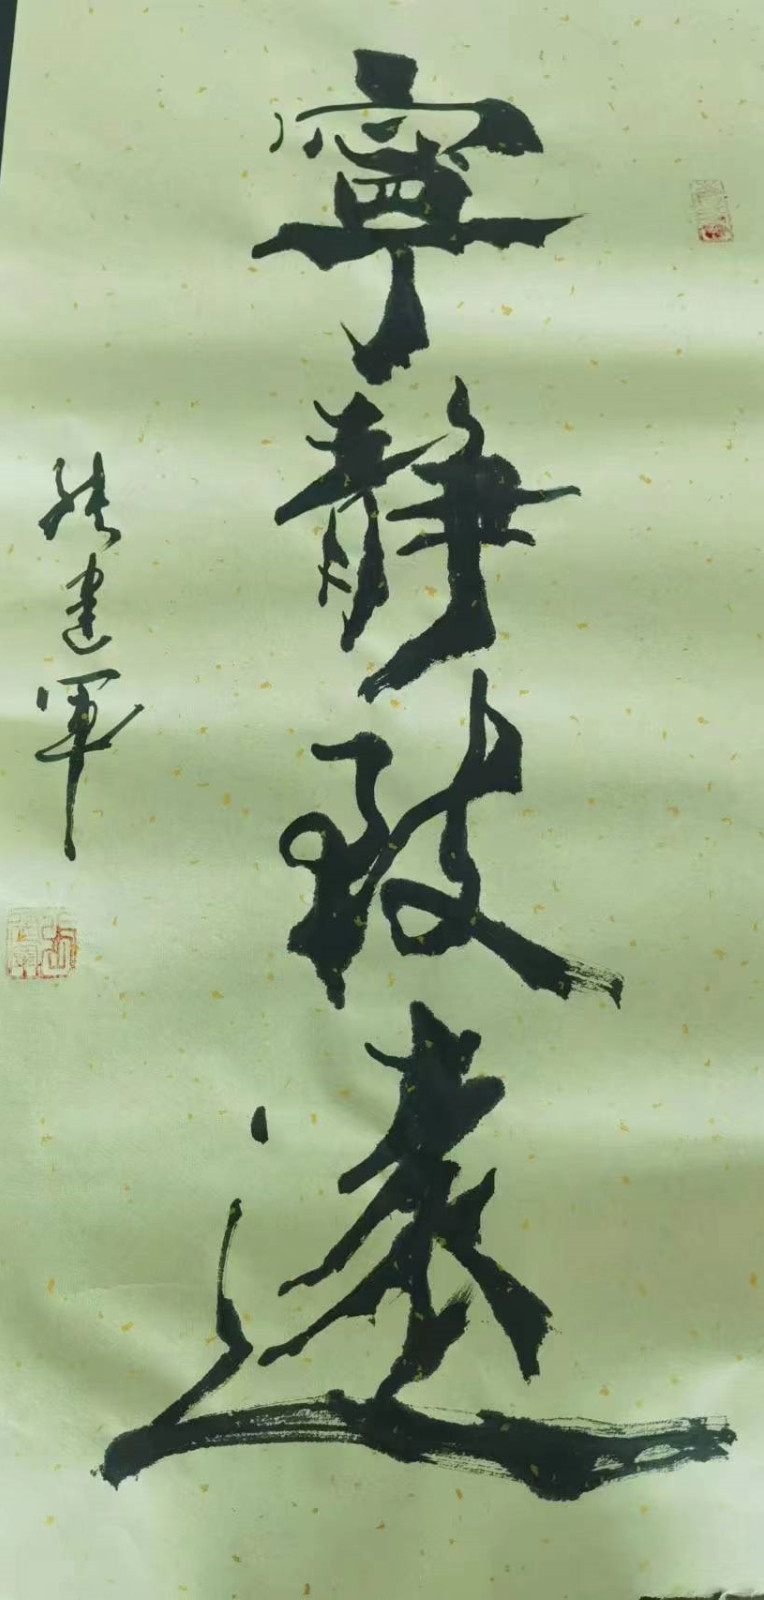 寧靜致遠
張建軍